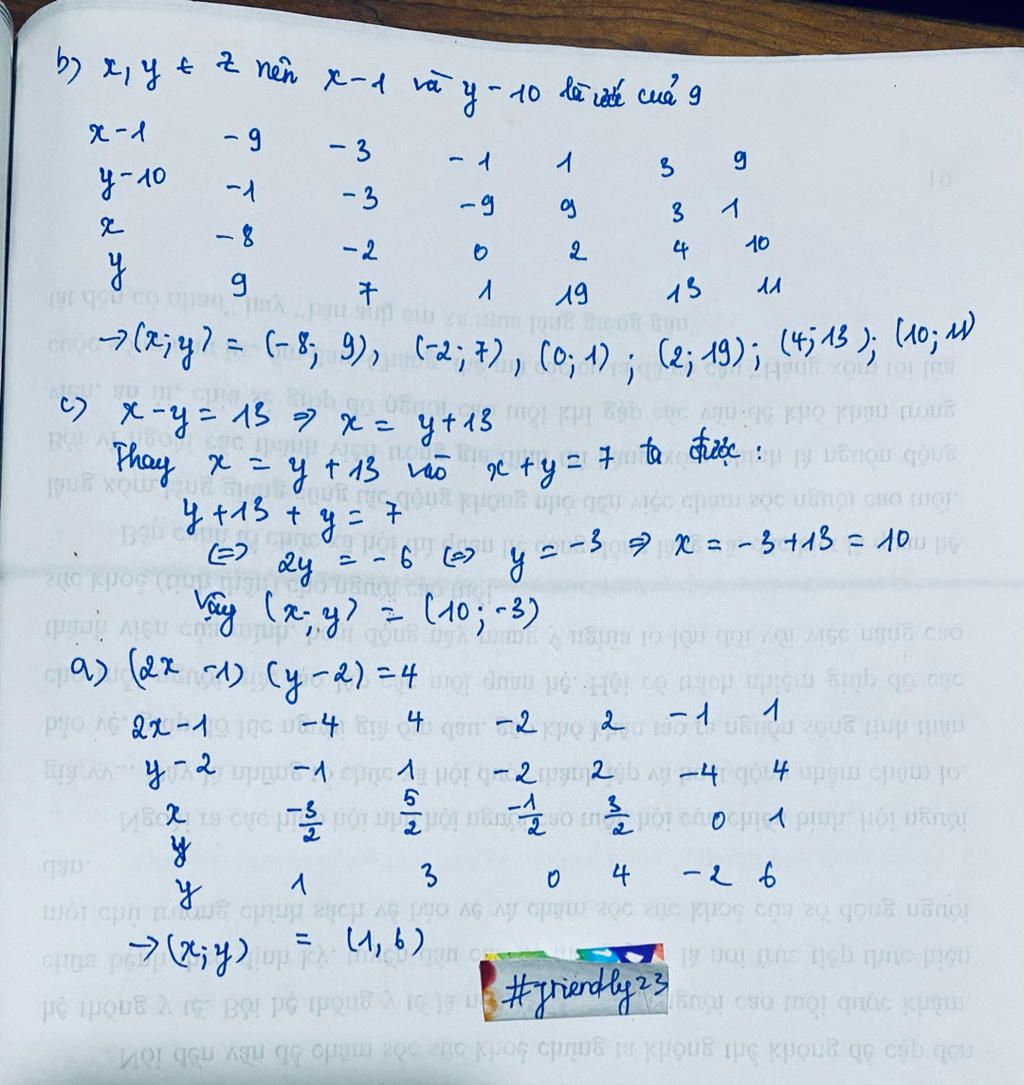 b) x, y ∈ Z nên x-1 và y-10 là ước của 9
x-1 -9 -3 -1 1 3 9
y-10 -1 -3 -9 9 3 1
x -8 -2 0 2 4 10
y 9 7 1 19 13 11
→(x;y) = (-8; 9), (-2; 7), (0; 1); (2; 19); (4; 13); (10; 11)
c) x-y = 13 ⇒ x = y+13
Thay x = y+13 vào x+y = 7 ta được:
y+13+y = 7
⇔ 2y = -6 ⇔ y = -3 ⇒ x = -3+13 = 10
Vậy (x; y) = (10; -3)
a) (2x-1) (y-2) = 4
2x-1 -4 4 -2 2 -1 1
y-2 -1 1 -2 2 -4 4
x -3/2 5/2 -1/2 3/2 0 1
y
y 1 3 0 4 -2 6
→(x;y) = (1, 6)
#friendly23